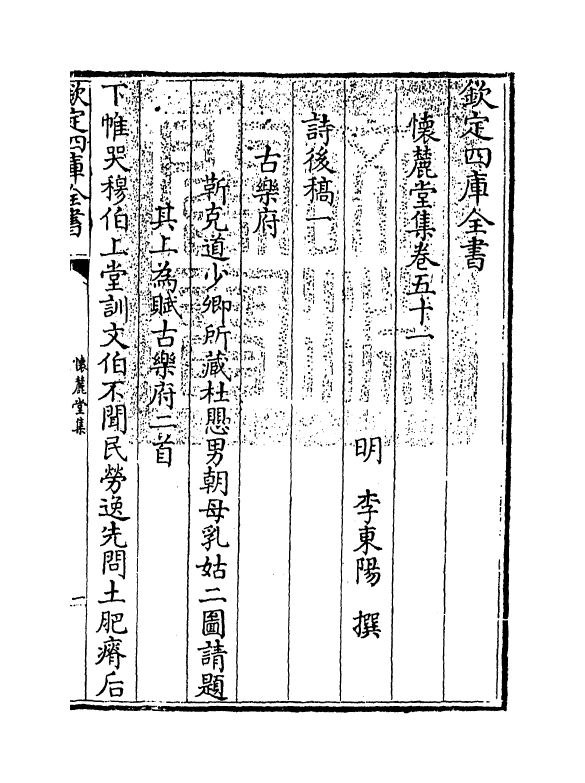 欽定四庫全書
懷麓堂集卷五十一
明 李東陽 撰
詩後稿一
古樂府
靳克道少卿所藏杜愳男朝母乳姑二圖請題
其上為賦古樂府二首
下帷哭穆伯上堂訓文伯不聞民勞逸先問土肥瘠后
欽定四庫全書
懷麓堂集
一